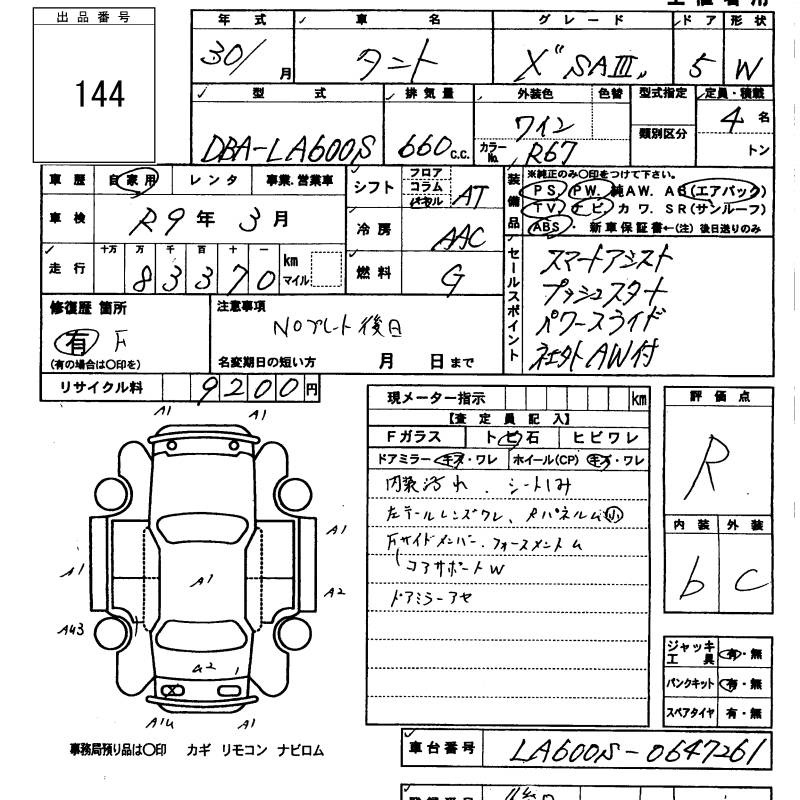 出品番号
144
年式 車名 グレード ドア 形状
30/ 月 タント X"SAⅢ" 5 W
型式 排気量 外装色 色替 型式指定 定員・積載
DBA-LA600S 660 c.c. ワイン カラーNo. R67 類別区分 4 名 トン
車歴 自家用 レンタ 事業.営業車
車検 R9 年 3 月
走行 十万 万 千 百 十 一 km マイル
8 3 3 7 0
シフト フロア コラム パネル AT
冷房 AAC
燃料 G
装備品 ※純正のみ〇印をつけて下さい。
PS PW. 純AW. AB(エアバック)
TV ナビ カワ. SR(サンルーフ)
ABS ・ 新車保証書←(注)後日送りのみ
セールスポイント
スマートアシスト
プッシュスタート
パワースライド
社外AW付
修復歴 箇所
有 F
(有の場合は〇印を)
注意事項
NOプレート後日
名変期日の短い方 月 日まで
リサイクル料 9200円
現メーター指示 km
【査定員記入】
Fガラス トビ石 ヒビワレ
ドアミラー キズ・ワレ ホイール(CP) キズ・ワレ
内装汚れ、シートしみ
左テールレンズワレ、Rパネルム小
Fサイドメンバー・フォースメントム
コアサポートW
ドアミラーアセ
評価点
R
内装 外装
b C
ジャッキ工具 有・無
パンクキット 有・無
スペアタイヤ 有・無
A1 A1
A1 A1
A1
A2
A43
A2
X
A14 A1
事務局預り品は〇印 カギ リモコン ナビロム
車台番号 LA600S-0647261